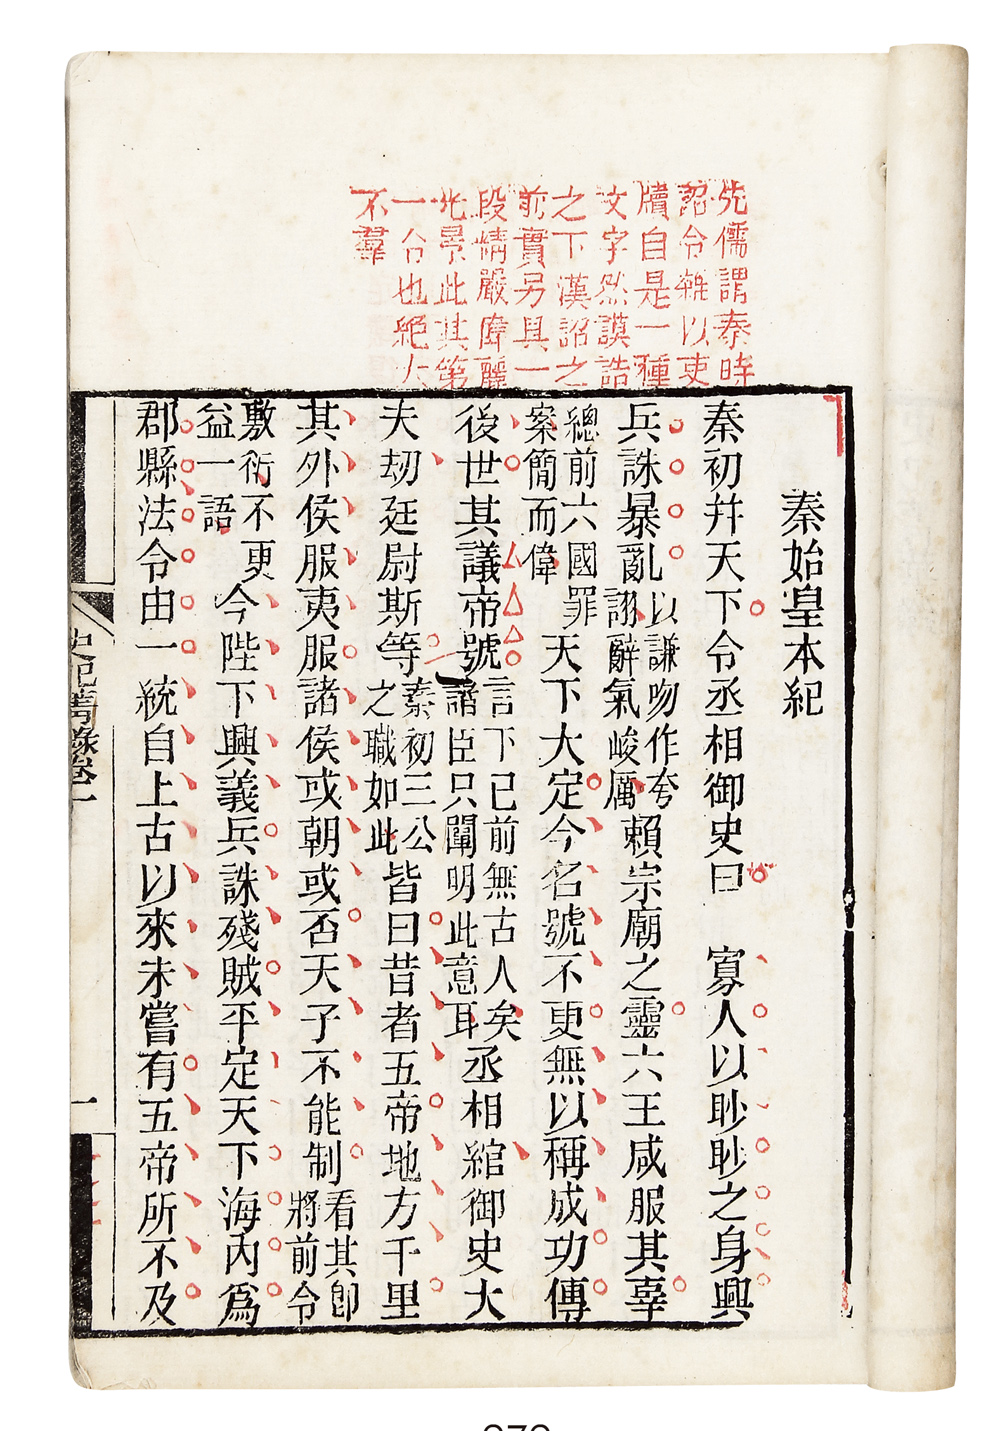 先儒謂秦時
詔令雜以吏
牘自是一種
文字然謨誥
之下漢詔之
前實另具一
段精嚴偉麗
光景此其第
一令也絕大
不羣
秦始皇本紀
秦初并天下令丞相御史曰 寡人以眇眇之身興
兵誅暴亂以謙吻作夸詡辭氣峻厲賴宗廟之靈六王咸服其辜
總前六國罪案簡而偉天下大定今名號不更無以稱成功傳
後世其議帝號言下已前無古人矣諸臣只闡明此意耳丞相綰御史大
夫劫廷尉斯等秦初三公之職如此皆曰昔者五帝地方千里
其外侯服夷服諸侯或朝或否天子不能制看其卽將前令
敷衍不更益一語今陛下興義兵誅殘賊平定天下海內爲
郡縣法令由一統自上古以來未嘗有五帝所不及
史記菁華錄卷一
一